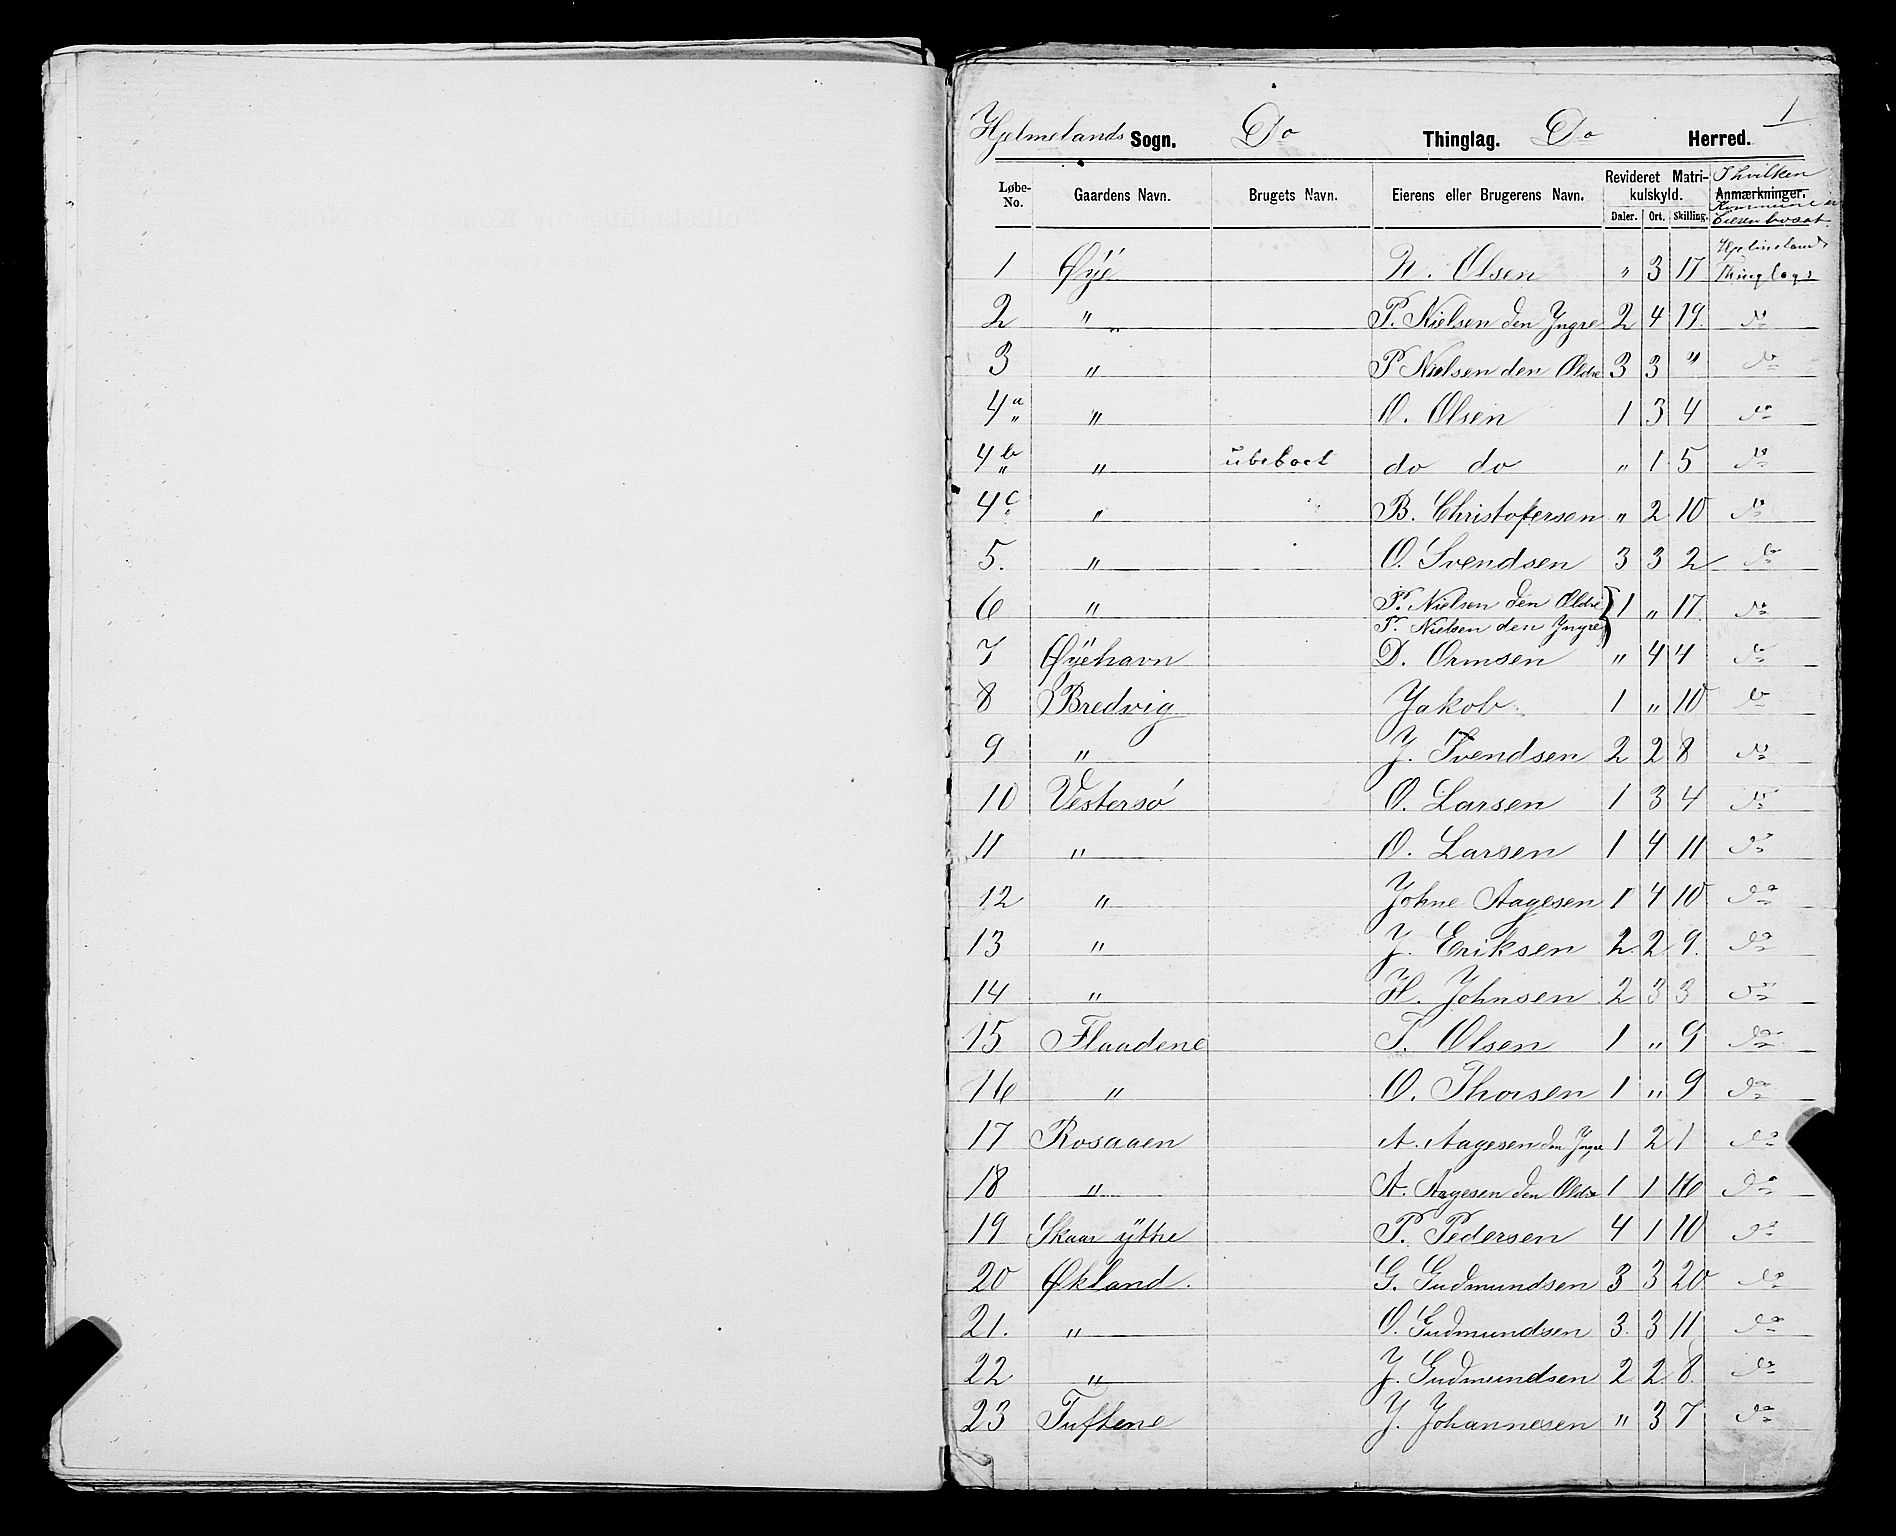 1
Hjelmelands Sogn. Do Thinglag. Do Herred.
Løbe-No. Gaardens Navn. Brugets Navn. Eierens eller Brugerens Navn. Revideret Matrikulskyld. Daler. Ort. Skilling. Anmærkninger. I hvilken Kommune er Eieren bosat
1 Øye N. Olsen " 3 17 Hjelmelands Thinglags
2 " P. Nielsen den Yngre 2 4 19. do
3 " P Nielsen den Ældre 3 3 " do
4a " O. Olsen 1 3 4 do
4b " ubeboet do do " 1 5 do
4c " B. Christofersen " 2 10 do
5. " O. Svendsen 3 3 2 do
6 " P. Nielsen den Ældre 1 " 17. do
P. Nielsen den Yngre
7 Øyehavn D. Ormsen " 4 4 do
8 Bredvig Jakob 1 " 10 do
9 " J. Svendsen 2 2 8 do
10 Vestersø O. Larsen 1 3 4 do
11 " O. Larsen 1 4 11 do
12 " Johne Aagesen 1 4 10 do
13 " J. Eriksen 2. 2 9. do
14 " H. Johnsen 2 3 3 do
15 Flaadene T. Olsen 1 " 9 do
16 " O. Thorsen 1 " 9 do
17 Rosaaen A. Aagesen den Yngre 1 2 1 do
18 " A. Aagesen den Ældre 1 1 16 do
19 Skaar yttre P. Pedersen 4 1 10 do
20 Økland. G. Gudmundsen 3 3 20 do
21. " O. Gudmundsen 3. 3 11 do
22 " J. Gudmundsen 2 2 8. do
23 Tuftene J. Johannesen " 3 7 do